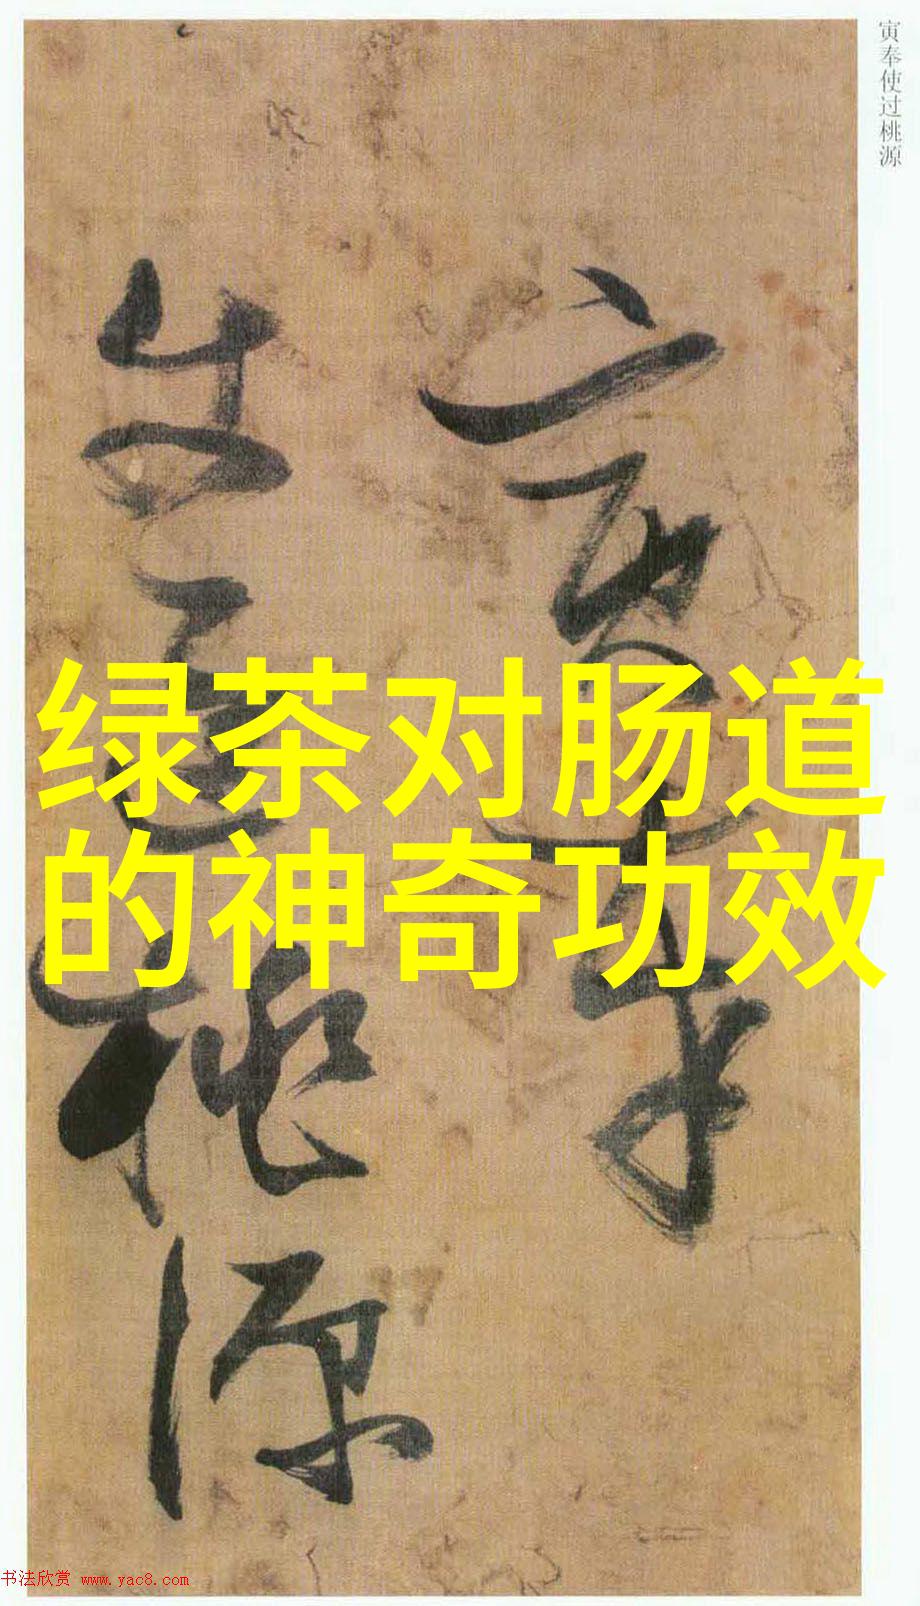 寅奉使过桃源
寅奉
使过桃源
绿茶对肠道
的神奇功效
书法欣赏 www.yac8.com